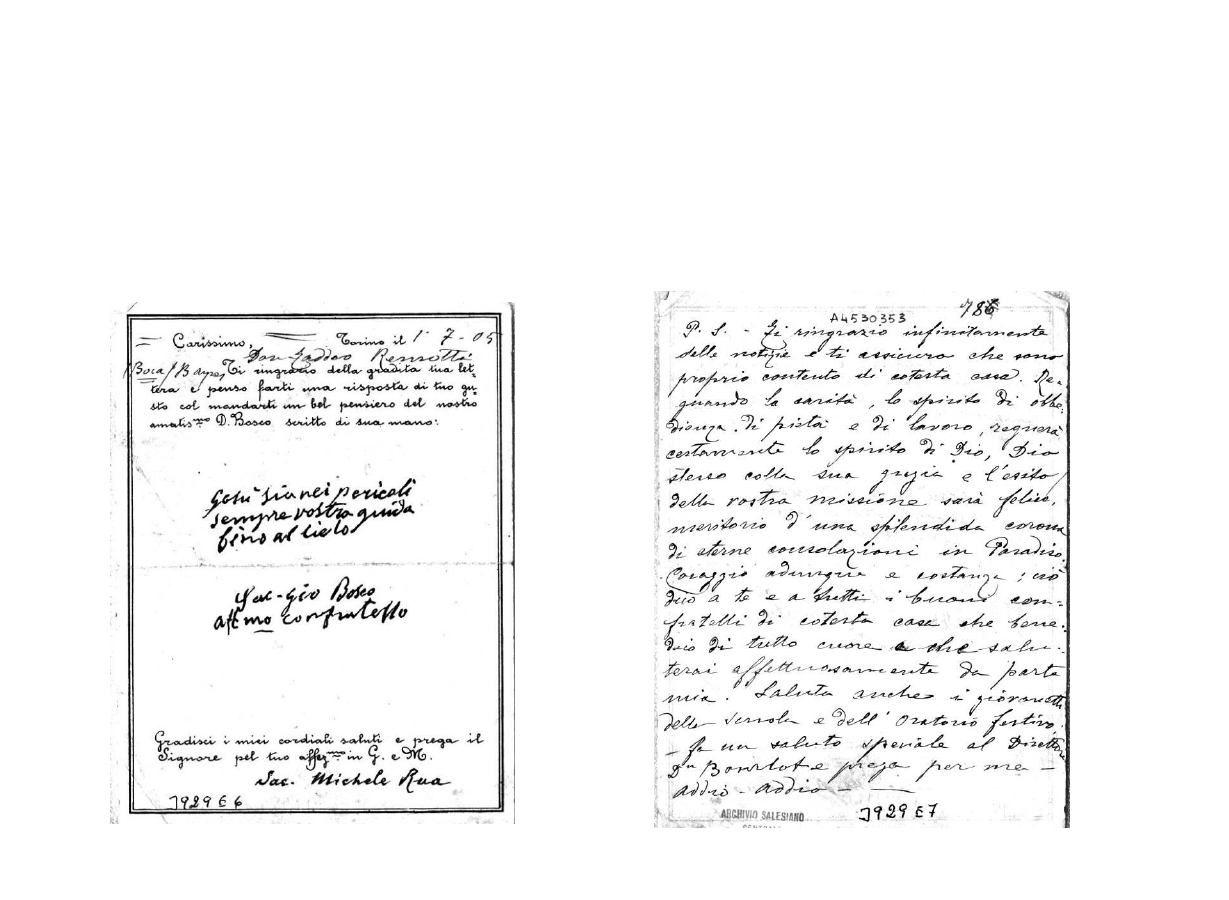 Carissimo, Torino il 1° 7-05
Don Taddeo Remotti
(Boca/Bayre, Ti ringrazio della gradita tua let-
tera e penso farti una risposta di tuo gu-
sto col mandarti un bel pensiero del nostro
amatis.mo D. Bosco scritto di sua mano:
Gesù sia nei pericoli
sempre vostra guida
fino al cielo
Sac-Gio Bosco
aff.mo confratello
Gradisci i miei cordiali saluti e prega il
Signore pel tuo affez.mo in G. e M.
Sac. Michele Rua
J929E6
786
A4530353
P. S. - Ti ringrazio infinitamente
delle notizie e ti assicuro che sono
proprio contento di cotesta casa. Re-
gnando la carità, lo spirito di obbe-
dienza, di pietà e di lavoro, regnerà
certamente lo spirito di Dio, Dio
stesso colla sua grazia e l'esito
della vostra missione sarà felice,
meritorio d'una splendida corona
di eterne consolazioni in Paradiso.
Coraggio adunque e costanza; ciò
dico a te e a tutti i buoni con-
fratelli di cotesta casa che bene-
dico di tutto cuore e che salu-
terai affettuosamente da parte
mia. Saluta anche i giovanetti
della scuola e dell'Oratorio festivo.
- Fa un saluto speciale al Direttore
Dn Bourlot e prega per me -
addio - addio -
ARCHIVIO SALESIANO
CENTRALE
J929E7